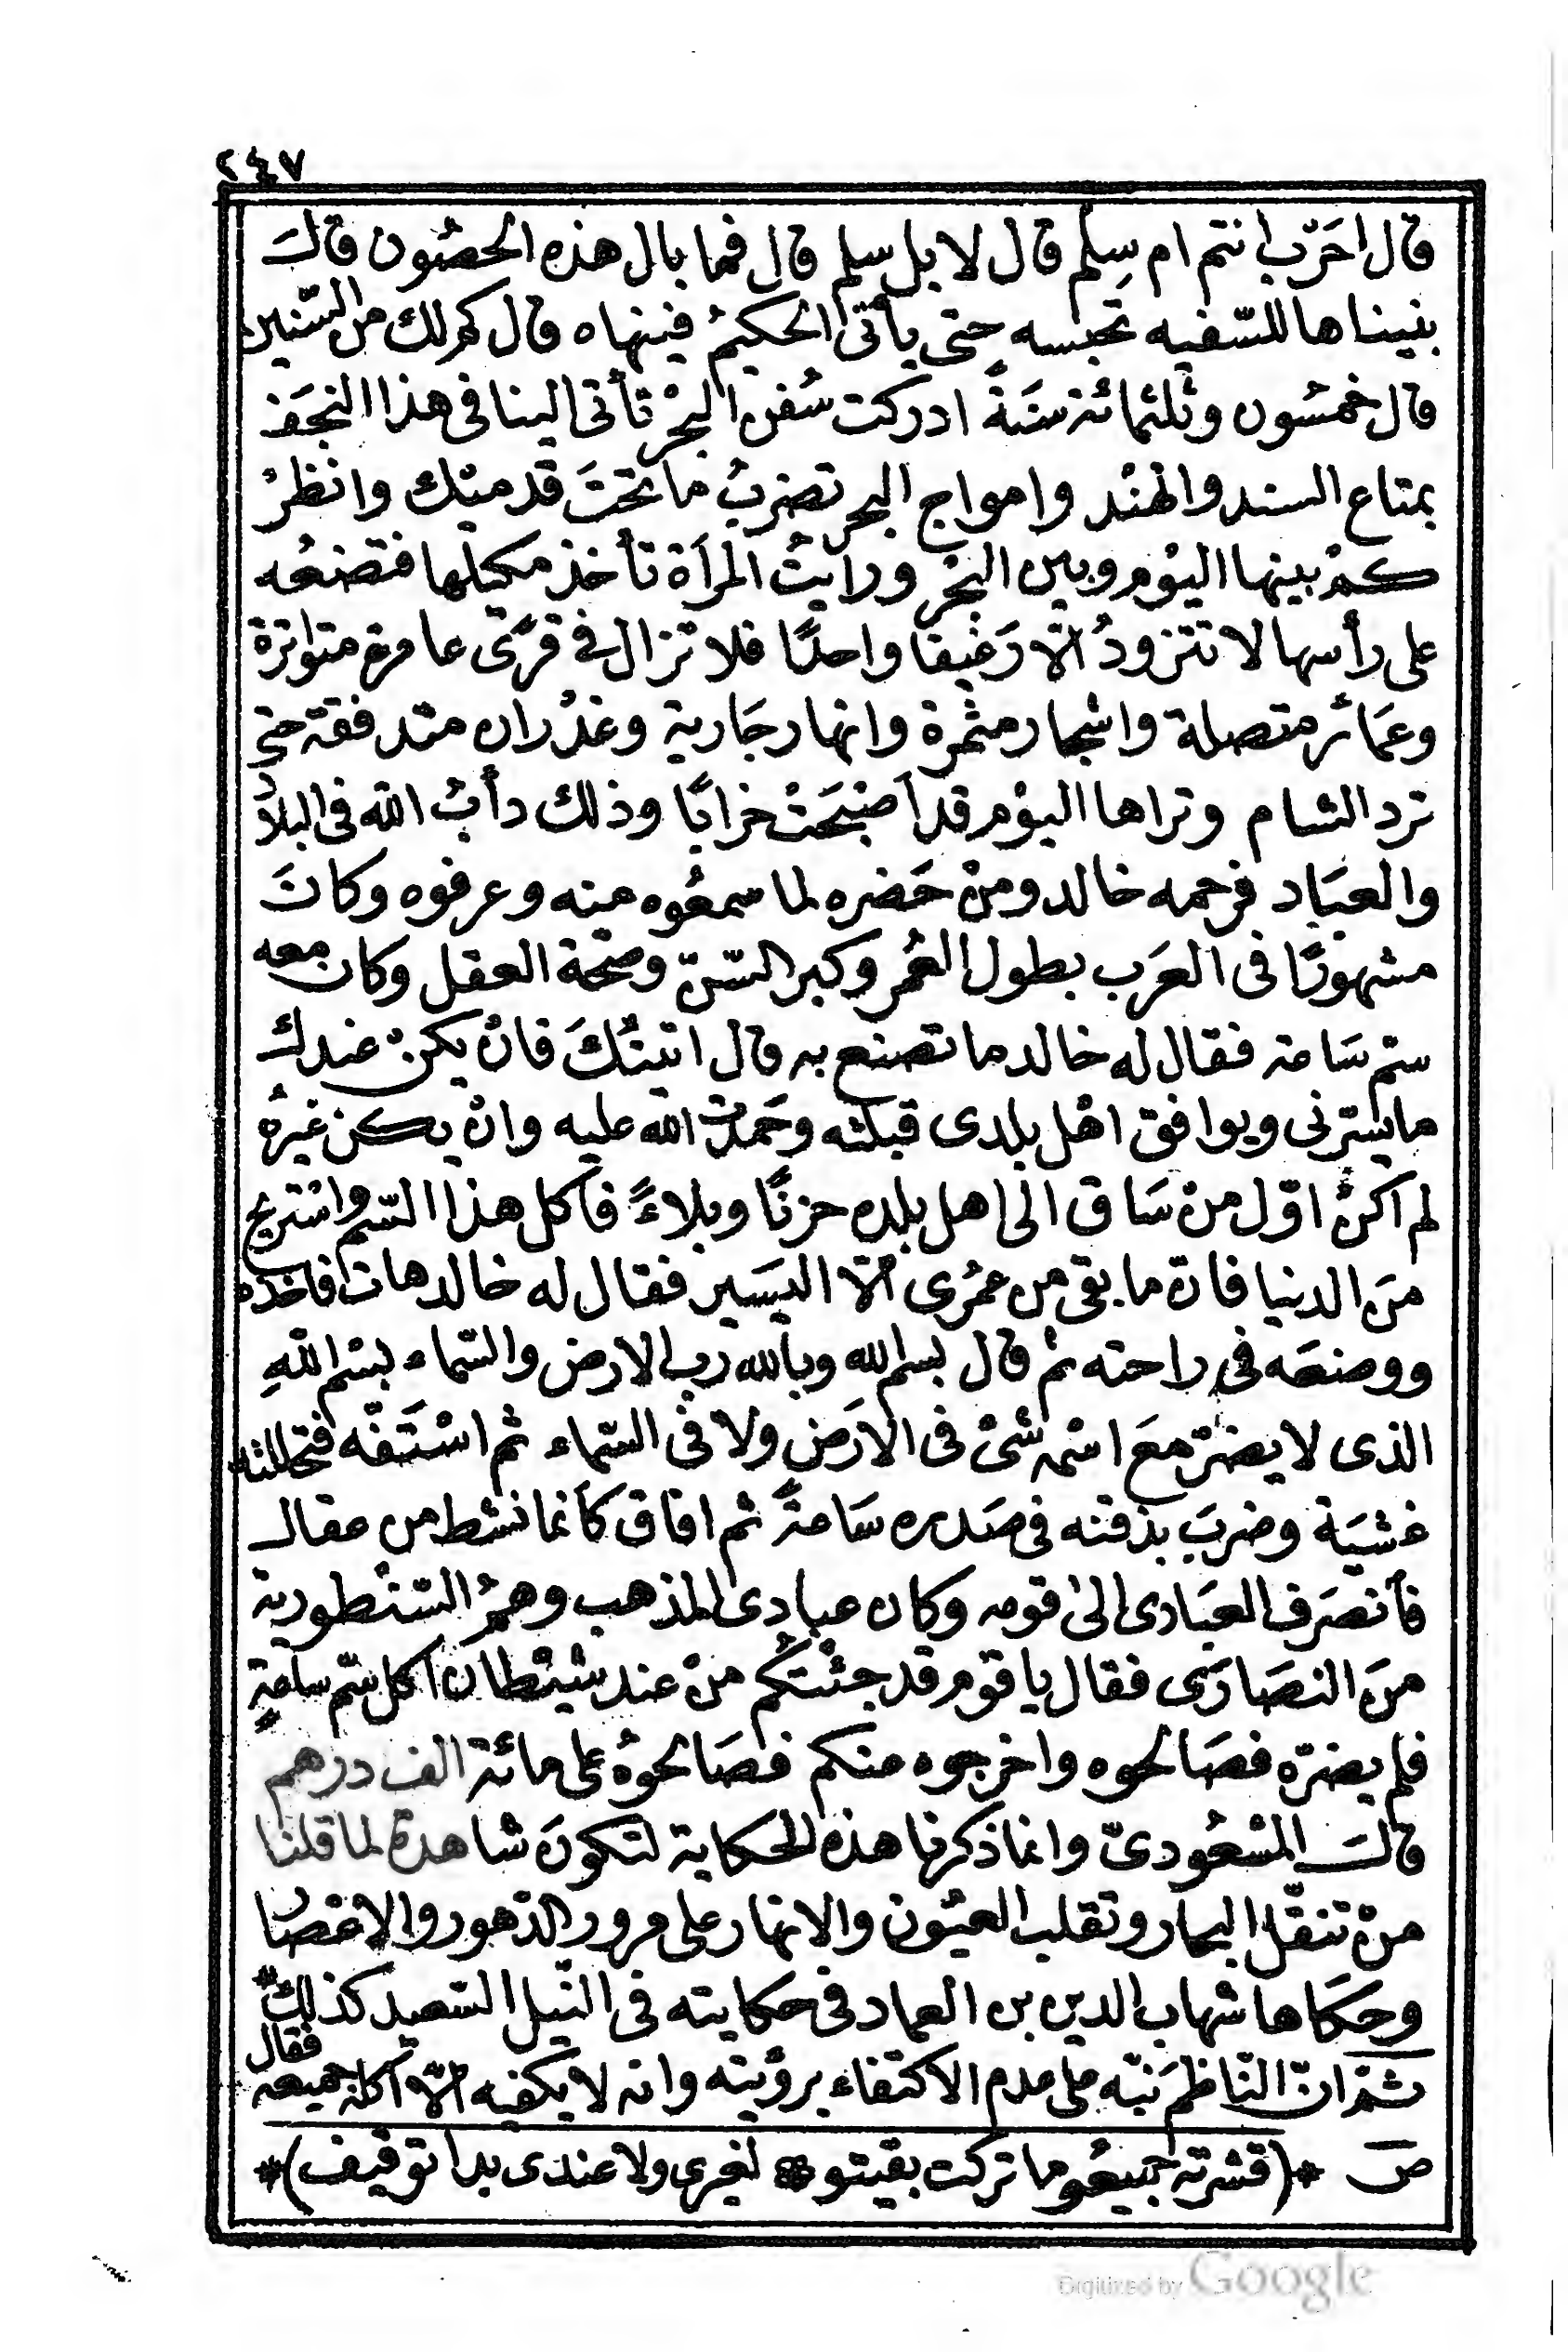 ٢٤٧
قال احَرْب انتم ام سِلْم قال لا بل سلم قال فما بال هذه الحصُون قالَ
بنيناها للسّفيه تحبسه حتى يأتى الحكيمُ فينهاه قال كم لك من السّنين
قال خمسُون وثلثمائة سَنَةً ادركت سُفن البحْر تأتى الينا فى هذا النجَف
بمتاع السند والهنْد وامواج البحر تضربُ ما تحتَ قدميْك وانظرْ
كمْ بينها اليوْم وبين البحْر ورايتُ المرْأة تأخذ مكتلها فتضعُه
على رأسها لا تتزودُ الّا رَغيفًا واحدًا فلا تزال فى قرًى عامرة متواترة
وعمَائر متصلة واشجار مثمرة وانهار جَارية وغدْران متدفقة حتى
ترد الشام وتراها اليوْم قد أصْبحَتْ خرابًا وذلك دأبُ الله فى البلادْ
والعبَاد فرحمه خالد ومنْ حَضره لما سمعُوه منه وعرفوه وكانَ
مشهورًا فى العرَب بطول العُمر وكبر السّنّ وصحّة العقل وكان معه
سمّ سَاعة فقال له خالد ما تصنع به قال اتيتُكَ فانْ يكنْ عندك
ما يسّرنى ويوافق اهْل بلدى قبلته وحَمدْت الله عليه وانْ يكن غيرهُ
لم اكنْ اوّل منْ سَاق الى اهل بلده حزنًا وبلاءً فآكل هذا السّم واسْتريح
منَ الدنيا فانّ ما بقى من عمُرى الّا اليسَير فقال له خالد هات فاخذه
ووضعَه فى راحته ثم قال بسم الله وبالله رب الارض والسّماء بسْم اللهِ
الذى لا يضرّ معَ اسْمه شىْ فى الارَض ولا فى السّماء ثم اسْتَفّه فتجللته
غشيَة وضربَ بذقنه فى صَدره سَاعةً ثم افاق كأنما نشط من عقال
فأنصَرف العبَادى الىٰ قومه وكان عبادى المذهب وهمُ النسْطورية
منَ النصَارَى فقال يا قوم قد جئتُكم منْ عند شيْطان اكل سّم ساعةٍ
فلم يضرّه فصَالحوه واخرجوه عنكم فصَالحوُه على مائة الف درهم
قالَ المسْعُودىّ وانما ذكرنا هذه الحكاية لتكونَ شاهدة لما قلنا
منْ تنقّل البحار وتقلب العيُون والانهار على مرور الدّهور والاعْصار
وحكَاها شهاب الدين بن العماد فى حكايته فى النّيل السّعيد كذلكْ
ثمّ انّ النّاظمَ نبّه على عدم الاكتفاء برؤيته وانه لا يكفيه الّا اكله جميعه فقال
ص *(قشرته جميعُو ما تركت بقيتو * لغيرى ولا عندى بدا توقيف)*
Digitized by Google